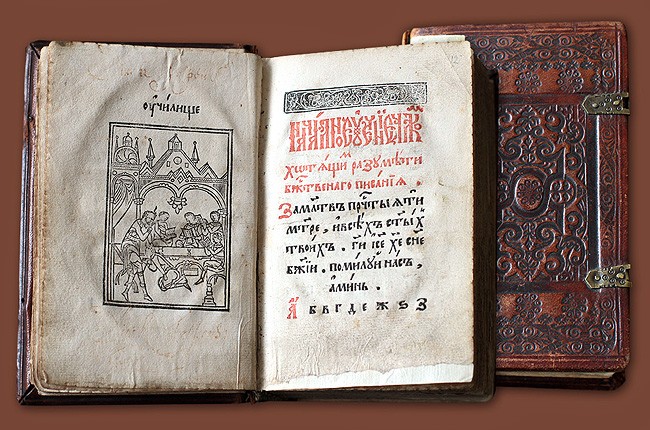 оучилище
хотѧщиⷨ разумѣти
бж҃ственаго писанїѧ .
За мл҃твъ прⷱ҇тыѧ ти
мт҃ре , и всѣхъ ст҃ыхъ
твоихъ . гⷭ҇и іс҃е хе҃ сн҃е
бж҃їи . помилуй насъ ,
аминь .
А б в г д е ж ѕ З